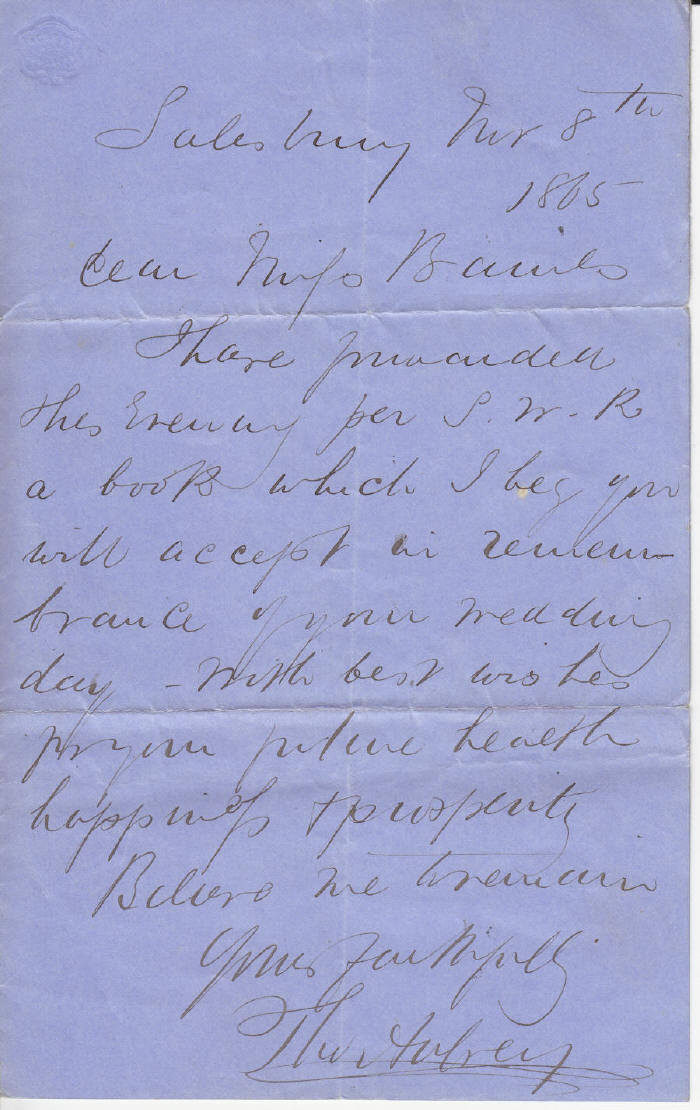 Salesbury Nov 8th
1865
Dear Miss Baines
I have forwarded
this Evening per S. W. R
a book which I beg you
will accept in remem-
brance of your wedding
day - with best wishes
for your future health
happiness & prosperity
Believe me to remain
Yours faithfully
Thos Aubrey